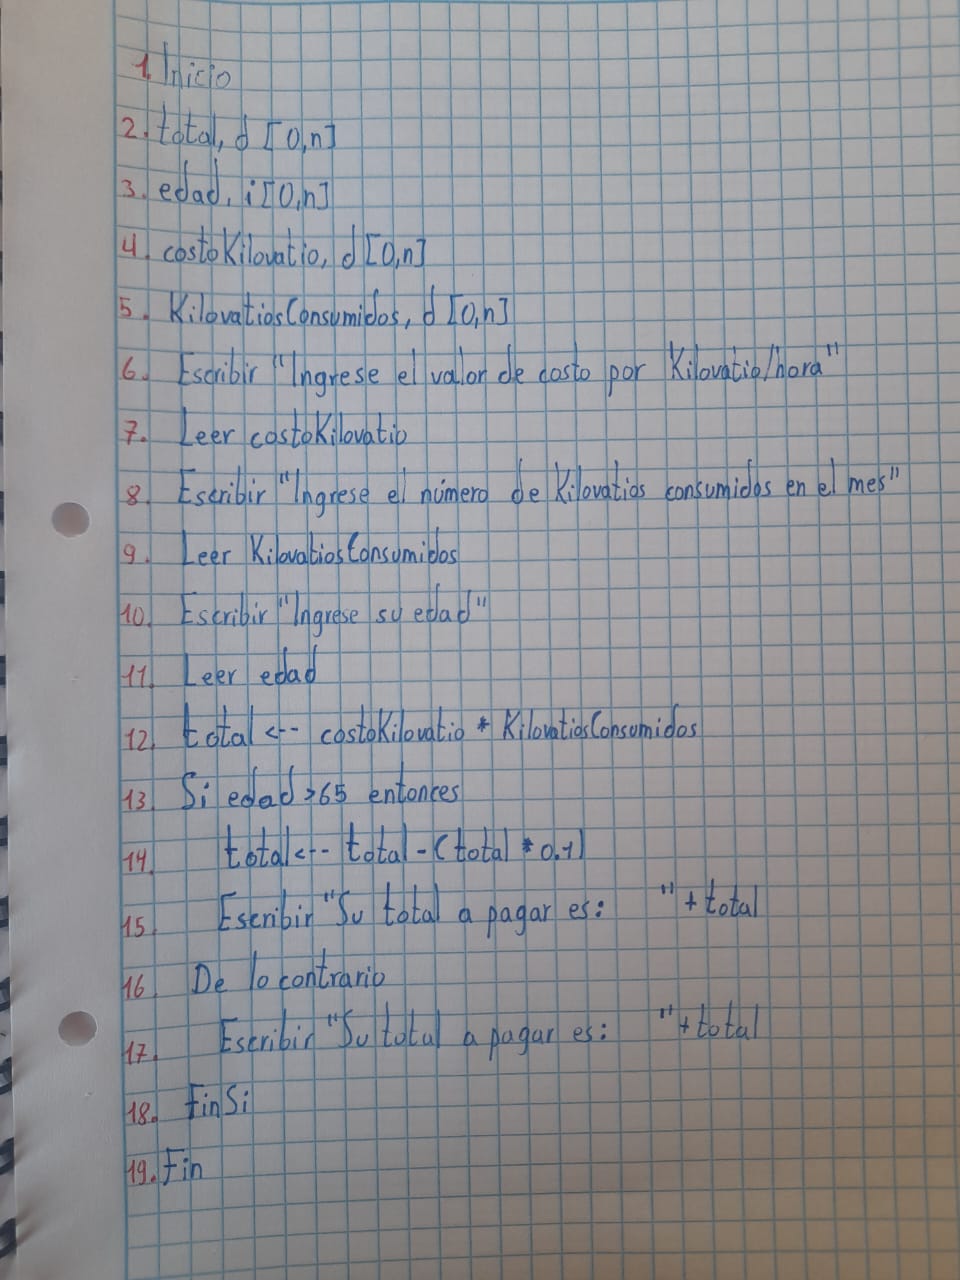 1. Inicio
2. total, d [0,n]
3. edad, i [0,n]
4. costoKilovatio, d [0,n]
5. KilovatiosConsumidos, d [0,n]
6. Escribir "Ingrese el valor de costo por Kilovatio/hora"
7. Leer costoKilovatio
8. Escribir "Ingrese el número de Kilovatios consumidos en el mes"
9. Leer KilovatiosConsumidos
10. Escribir "Ingrese su edad"
11. Leer edad
12. total <-- costoKilovatio * KilovatiosConsumidos
13. Si edad >65 entonces
14. total <-- total - (total * 0.1)
15. Escribir "Su total a pagar es: " + total
16. De lo contrario
17. Escribir "Su total a pagar es: " + total
18. FinSi
19. Fin